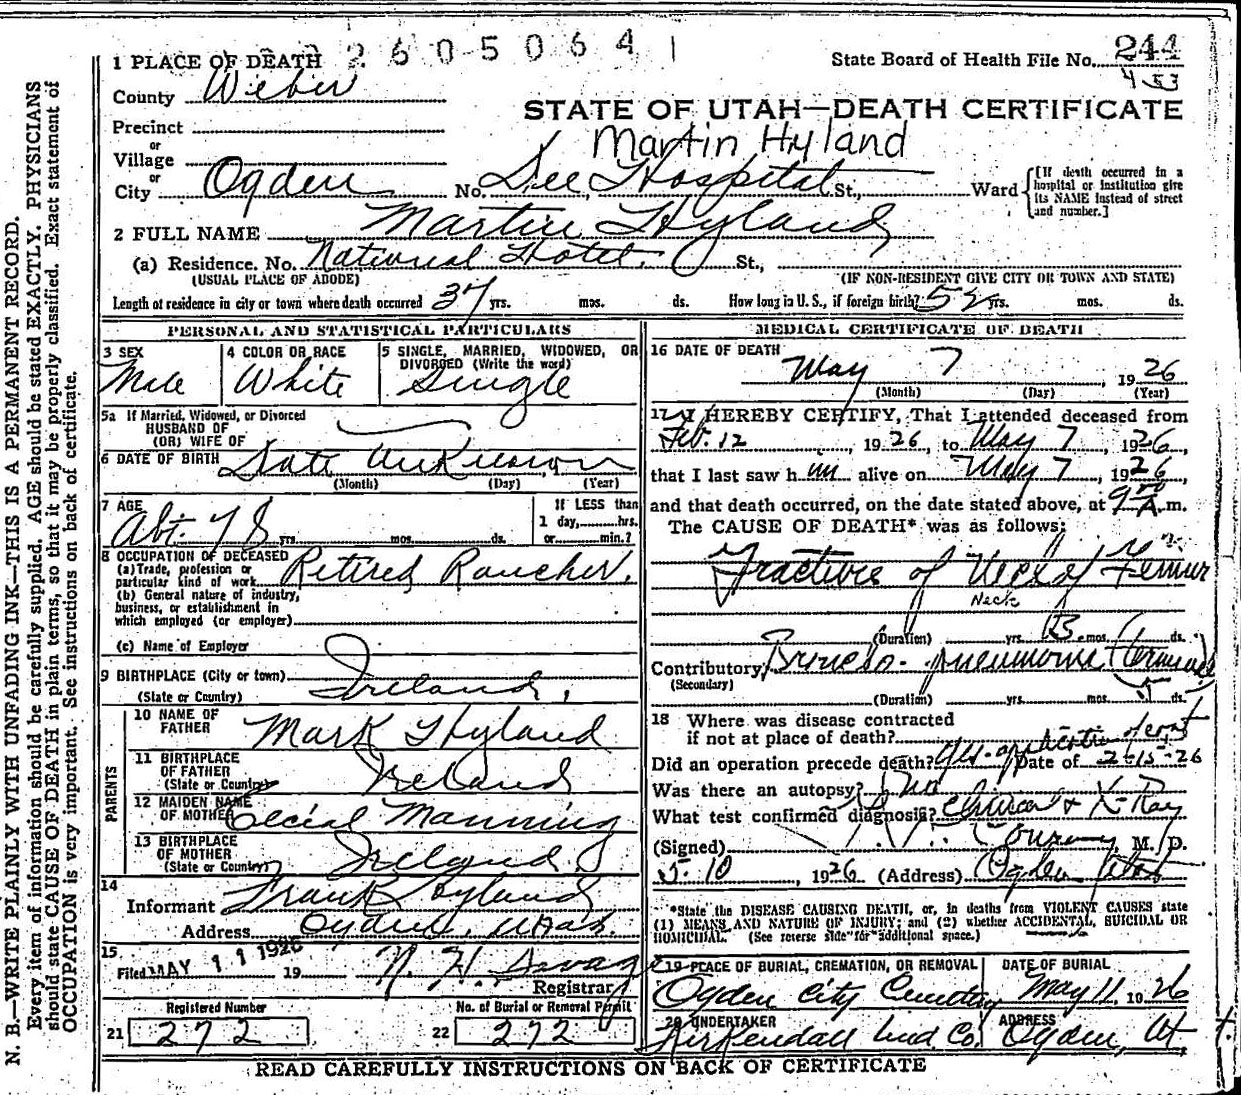 N. B.—WRITE PLAINLY WITH UNFADING INK—THIS IS A PERMANENT RECORD.
Every item of information should be carefully supplied. AGE should be stated EXACTLY. PHYSICIANS
should state CAUSE OF DEATH in plain terms, so that it may be properly classified. Exact statement of
OCCUPATION is very important. See instructions on back of certificate.
2605064
1 PLACE OF DEATH
State Board of Health File No. 244
453
County Weber
STATE OF UTAH—DEATH CERTIFICATE
Precinct
Martin Hyland
or
Village
or
City Ogden No. Dee Hospital St., Ward
[If death occurred in a
hospital or institution give
its NAME instead of street
and number.]
2 FULL NAME Martin Hyland
(a) Residence. No. National Hotel. St.,
(USUAL PLACE OF ABODE) (IF NON-RESIDENT GIVE CITY OR TOWN AND STATE)
Length of residence in city or town where death occurred 37 yrs. mos. ds. How long in U. S., if foreign birth? 52 yrs. mos. ds.
PERSONAL AND STATISTICAL PARTICULARS
3 SEX Male
4 COLOR OR RACE White
5 SINGLE, MARRIED, WIDOWED, OR
DIVORCED (Write the word)
Single
5a If Married, Widowed, or Divorced
HUSBAND OF
(OR) WIFE OF
6 DATE OF BIRTH Date Unknown
(Month) (Day) (Year)
7 AGE Abt. 78 yrs. mos. ds.
If LESS than
1 day, hrs.
or min.?
8 OCCUPATION OF DECEASED
(a) Trade, profession or
particular kind of work Retired Rancher.
(b) General nature of industry,
business, or establishment in
which employed (or employer)
(c) Name of Employer
9 BIRTHPLACE (City or town)
(State or Country) Ireland,
PARENTS
10 NAME OF
FATHER Mark Hyland
11 BIRTHPLACE
OF FATHER
(State or Country) Ireland
12 MAIDEN NAME
OF MOTHER Cecial Manning
13 BIRTHPLACE
OF MOTHER
(State or Country) Ireland
14
Informant Frank Hyland
Address Ogden, Utah.
15
Filed MAY 11 1926 19 N. H. Savage
Registrar
Registered Number
21 272
No. of Burial or Removal Permit
22 272
MEDICAL CERTIFICATE OF DEATH
16 DATE OF DEATH
May 7, 1926
(Month) (Day) (Year)
17 I HEREBY CERTIFY, That I attended deceased from
Feb. 12, 1926, to May 7, 1926,
that I last saw him alive on May 7, 1926
and that death occurred, on the date stated above, at 9 A.m.
The CAUSE OF DEATH* was as follows:
Fracture of Neck of Femur
Neck
(Duration) yrs. 3 mos. ds.
Contributory Broncho-pneumonia
(Secondary)
(Duration) yrs. mos. ds.
18 Where was disease contracted
if not at place of death?
Did an operation precede death? yes Date of 2-15-26
Was there an autopsy? No
What test confirmed diagnosis? Clinical & X-Ray
(Signed) M. D.
5-10, 1926 (Address) Ogden Utah
*State the DISEASE CAUSING DEATH, or, in deaths from VIOLENT CAUSES state
(1) MEANS AND NATURE OF INJURY; and (2) whether ACCIDENTAL, SUICIDAL OR
HOMICIDAL. (See reverse side for additional space.)
19 PLACE OF BURIAL, CREMATION, OR REMOVAL
Ogden City Cemetery
DATE OF BURIAL
May 11, 1926
20 UNDERTAKER
Kirkendall Und Co.
ADDRESS
Ogden, Ut.
READ CAREFULLY INSTRUCTIONS ON BACK OF CERTIFICATE